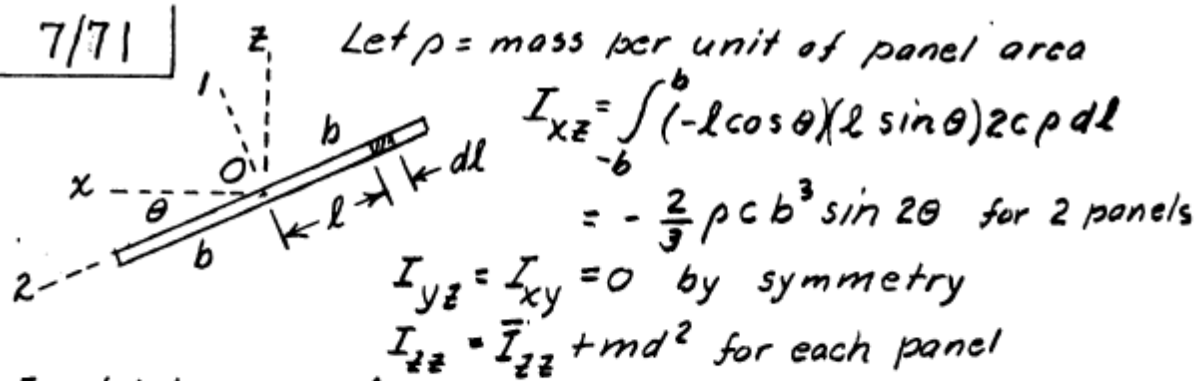 7/71
Let ρ = mass per unit of panel area
z
1
b
I_xz = ∫_{-b}^{b} (-l cos θ)(l sin θ) 2c ρ dl
O
dl
x
θ
l
= - 2/3 ρ c b³ sin 2θ for 2 panels
b
2
I_yz = I_xy = 0 by symmetry
I_zz = Ī_zz + md² for each panel